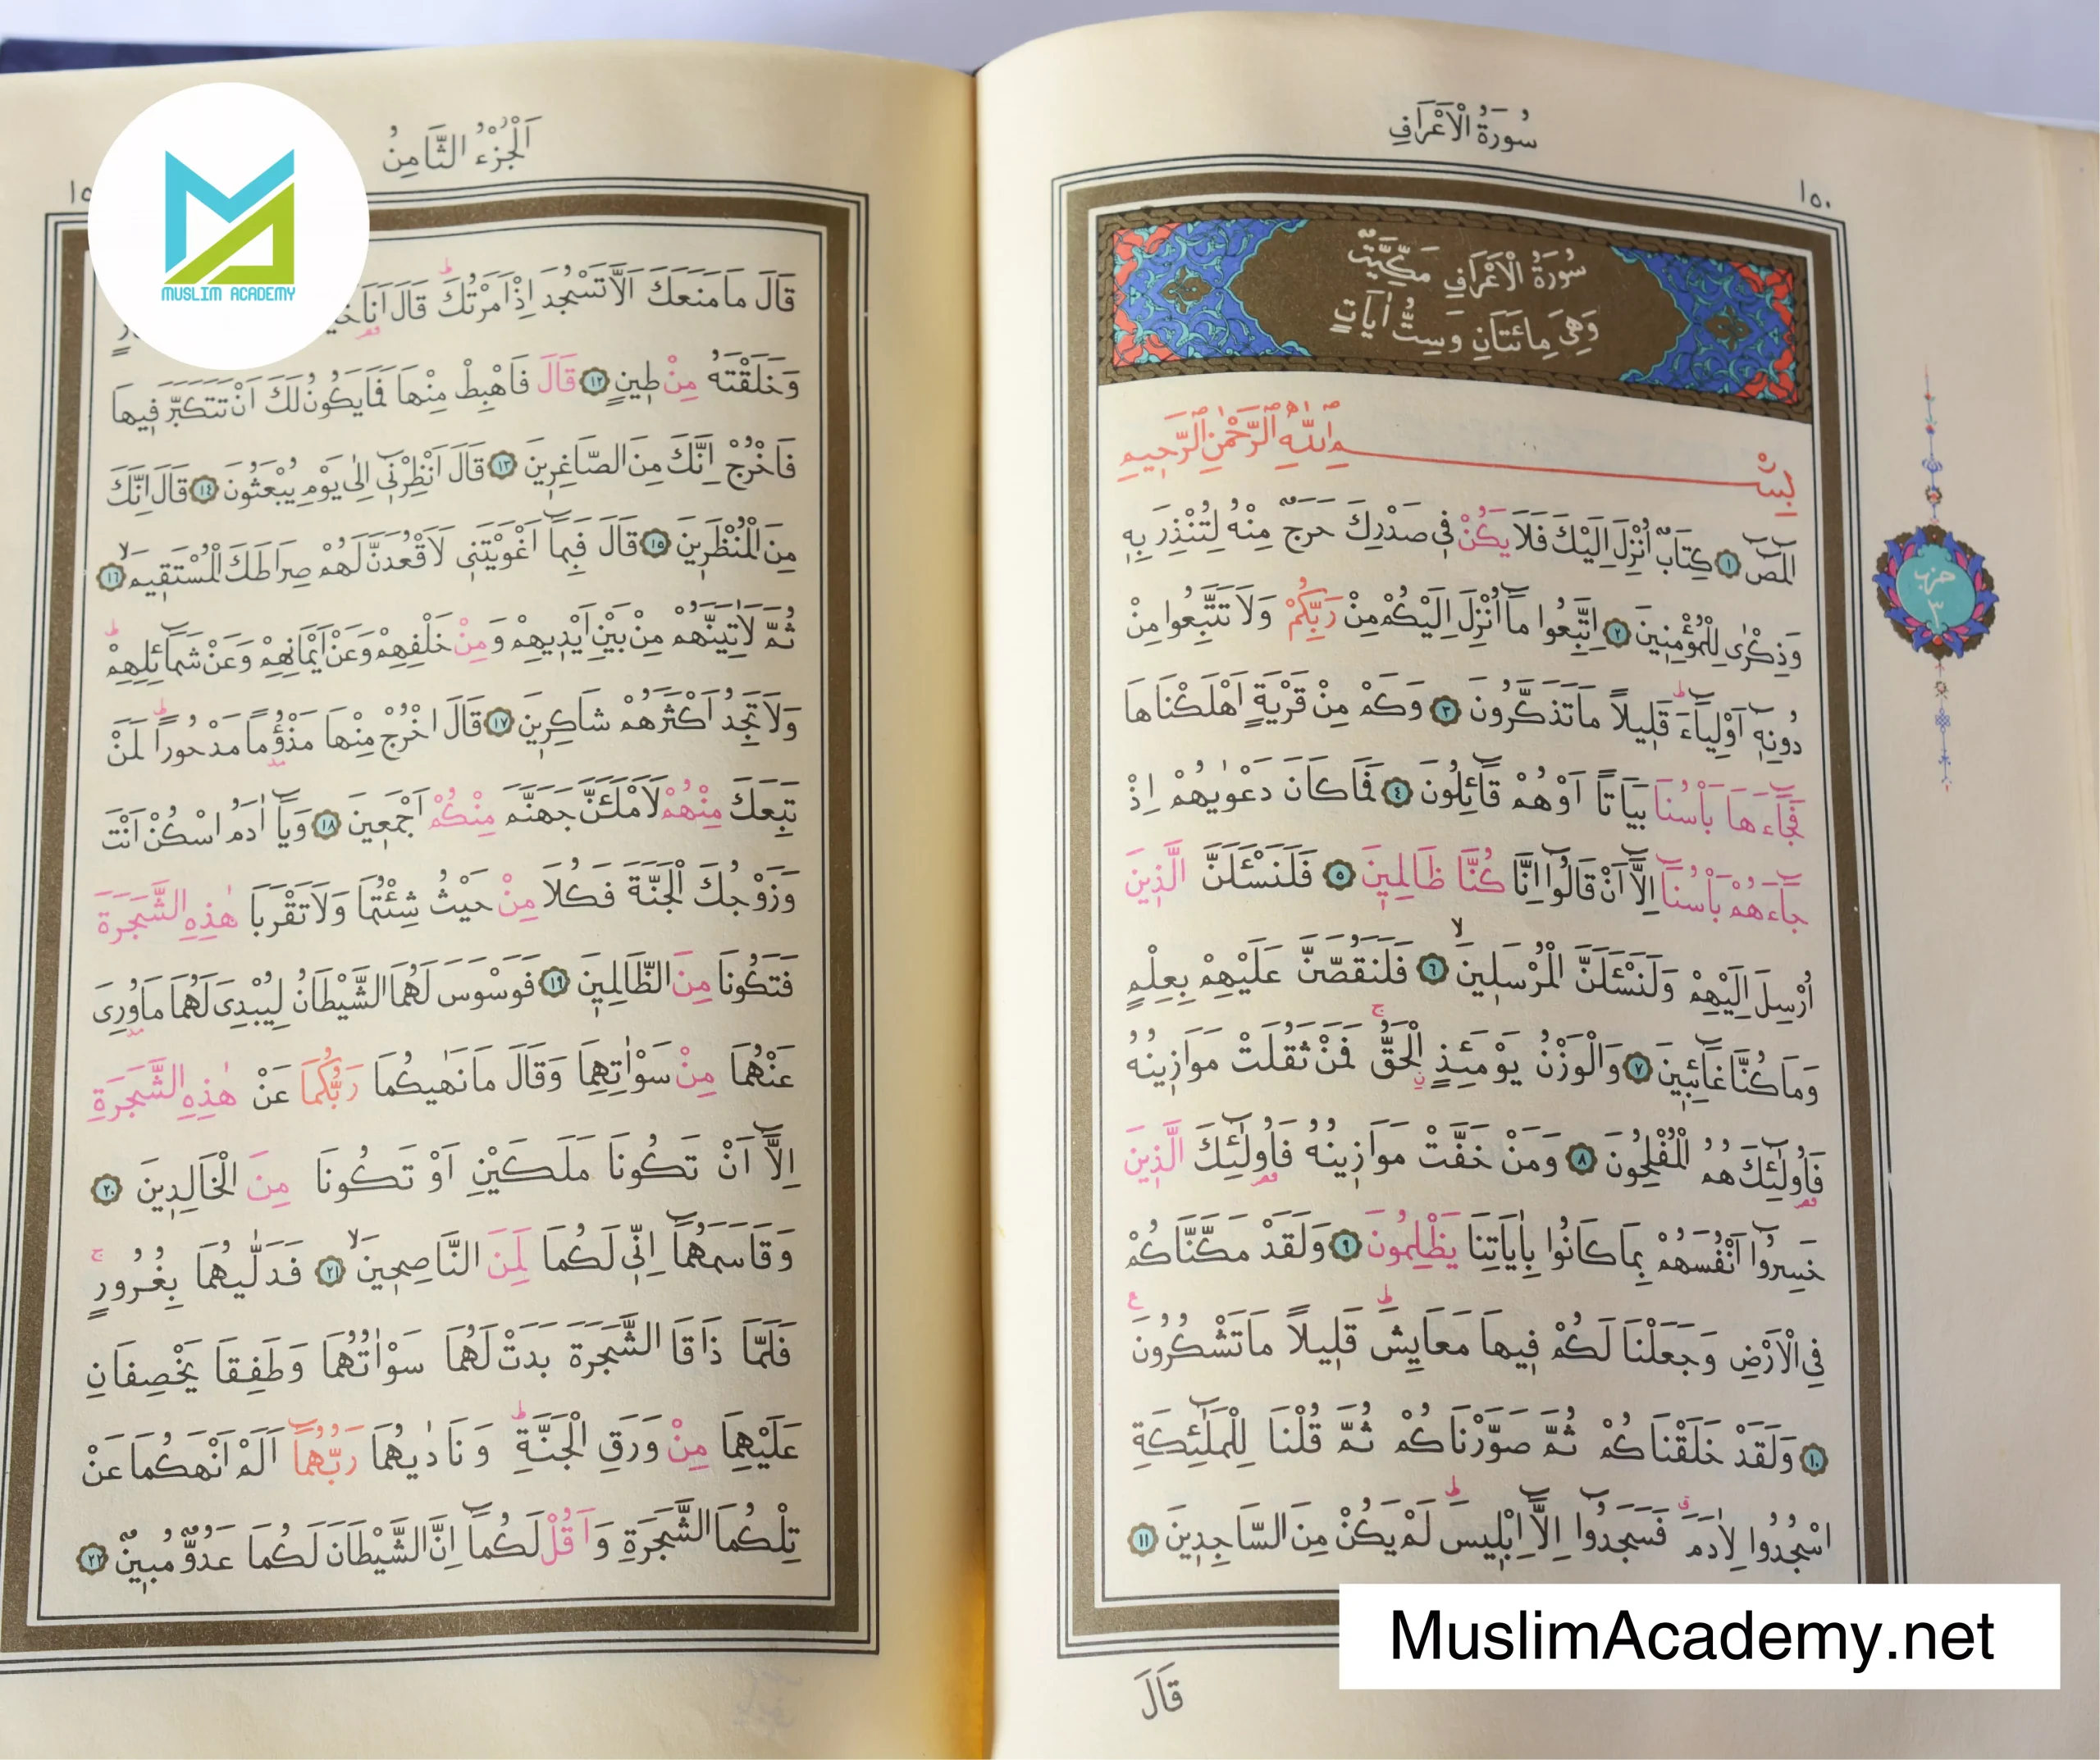 سُورَةُ الْاَعْرَافِ
١٥٠
سُورَةُ الْاَعْرَافِ مَكِّيَّةٌ
وَهِيَ مِائَتَانِ وَسِتُّ اٰيَاتٍ
بِسْمِ اللّٰهِ الرَّحْمٰنِ الرَّحِيمِ
الٓمٓصٓ ١ كِتَابٌ اُنْزِلَ اِلَيْكَ فَلَا يَكُنْ فِى صَدْرِكَ حَرَجٌ مِنْهُ لِتُنْذِرَ بِهِ
وَذِكْرٰى لِلْمُؤْمِنِينَ ٢ اِتَّبِعُوا مَٓا اُنْزِلَ اِلَيْكُمْ مِنْ رَبِّكُمْ وَلَا تَتَّبِعُوا مِنْ
دُونِهِٓ اَوْلِيَٓاءَ قَلِيلاً مَا تَذَكَّرُونَ ٣ وَكَمْ مِنْ قَرْيَةٍ اَهْلَكْنَاهَا
فَجَٓاءَهَا بَأْسُنَا بَيَاتًا اَوْ هُمْ قَٓائِلُونَ ٤ فَمَا كَانَ دَعْوٰيهُمْ اِذْ
جَٓاءَهُمْ بَأْسُنَٓا اِلَّٓا اَنْ قَالُٓوا اِنَّا كُنَّا ظَالِمِينَ ٥ فَلَنَسْئَلَنَّ الَّذِينَ
اُرْسِلَ اِلَيْهِمْ وَلَنَسْئَلَنَّ الْمُرْسَلِينَ ٦ فَلَنَقُصَّنَّ عَلَيْهِمْ بِعِلْمٍ
وَمَا كُنَّا غَٓائِبِينَ ٧ وَالْوَزْنُ يَوْمَئِذٍ الْحَقُّ فَمَنْ ثَقُلَتْ مَوَازِينُهُ
فَاُولٰٓئِكَ هُمُ الْمُفْلِحُونَ ٨ وَمَنْ خَفَّتْ مَوَازِينُهُ فَاُولٰٓئِكَ الَّذِينَ
خَسِرُٓوا اَنْفُسَهُمْ بِمَا كَانُوا بِاٰيَاتِنَا يَظْلِمُونَ ٩ وَلَقَدْ مَكَّنَّاكُمْ
فِى الْاَرْضِ وَجَعَلْنَا لَكُمْ فِيهَا مَعَايِشَ قَلِيلاً مَا تَشْكُرُونَ
١٠ وَلَقَدْ خَلَقْنَاكُمْ ثُمَّ صَوَّرْنَاكُمْ ثُمَّ قُلْنَا لِلْمَلٰٓئِكَةِ
اسْجُدُوا لِاٰدَمَ فَسَجَدُٓوا اِلَّٓا اِبْلِيسَ لَمْ يَكُنْ مِنَ السَّاجِدِينَ ١١
قَالَ
حزب
٣
اَلْجُزْءُ الثَّامِنُ
قَالَ مَا مَنَعَكَ اَلَّا تَسْجُدَ اِذْ اَمَرْتُكَ قَالَ اَنَا
وَخَلَقْتَهُ مِنْ طِينٍ ١٢ قَالَ فَاهْبِطْ مِنْهَا فَمَا يَكُونُ لَكَ اَنْ تَتَكَبَّرَ فِيهَا
فَاخْرُجْ اِنَّكَ مِنَ الصَّاغِرِينَ ١٣ قَالَ اَنْظِرْنِٓى اِلٰى يَوْمِ يُبْعَثُونَ ١٤ قَالَ اِنَّكَ
مِنَ الْمُنْظَرِينَ ١٥ قَالَ فَبِمَٓا اَغْوَيْتَنِى لَاَقْعُدَنَّ لَهُمْ صِرَاطَكَ الْمُسْتَقِيمَ ١٦
ثُمَّ لَاٰتِيَنَّهُمْ مِنْ بَيْنِ اَيْدِيهِمْ وَمِنْ خَلْفِهِمْ وَعَنْ اَيْمَانِهِمْ وَعَنْ شَمَٓائِلِهِمْ
وَلَا تَجِدُ اَكْثَرَهُمْ شَاكِرِينَ ١٧ قَالَ اخْرُجْ مِنْهَا مَذْؤُمًا مَدْحُورًا لَمَنْ
تَبِعَكَ مِنْهُمْ لَاَمْلَئَنَّ جَهَنَّمَ مِنْكُمْ اَجْمَعِينَ ١٨ وَيَٓا اٰدَمُ اسْكُنْ اَنْتَ
وَزَوْجُكَ الْجَنَّةَ فَكُلَا مِنْ حَيْثُ شِئْتُمَا وَلَا تَقْرَبَا هٰذِهِ الشَّجَرَةَ
فَتَكُونَا مِنَ الظَّالِمِينَ ١٩ فَوَسْوَسَ لَهُمَا الشَّيْطَانُ لِيُبْدِىَ لَهُمَا مَاوُرِىَ
عَنْهُمَا مِنْ سَوْاٰتِهِمَا وَقَالَ مَا نَهٰيكُمَا رَبُّكُمَا عَنْ هٰذِهِ الشَّجَرَةِ
اِلَّٓا اَنْ تَكُونَا مَلَكَيْنِ اَوْ تَكُونَا مِنَ الْخَالِدِينَ ٢٠
وَقَاسَمَهُمَٓا اِنِّى لَكُمَا لَمِنَ النَّاصِحِينَ ٢١ فَدَلّٰيهُمَا بِغُرُورٍ
فَلَمَّا ذَاقَا الشَّجَرَةَ بَدَتْ لَهُمَا سَوْاٰتُهُمَا وَطَفِقَا يَخْصِفَانِ
عَلَيْهِمَا مِنْ وَرَقِ الْجَنَّةِ وَنَادٰيهُمَا رَبُّهُمَٓا اَلَمْ اَنْهَكُمَا عَنْ
تِلْكُمَا الشَّجَرَةِ وَاَقُلْ لَكُمَٓا اِنَّ الشَّيْطَانَ لَكُمَا عَدُوٌّ مُبِينٌ ٢٢
MUSLIM ACADEMY
MuslimAcademy.net